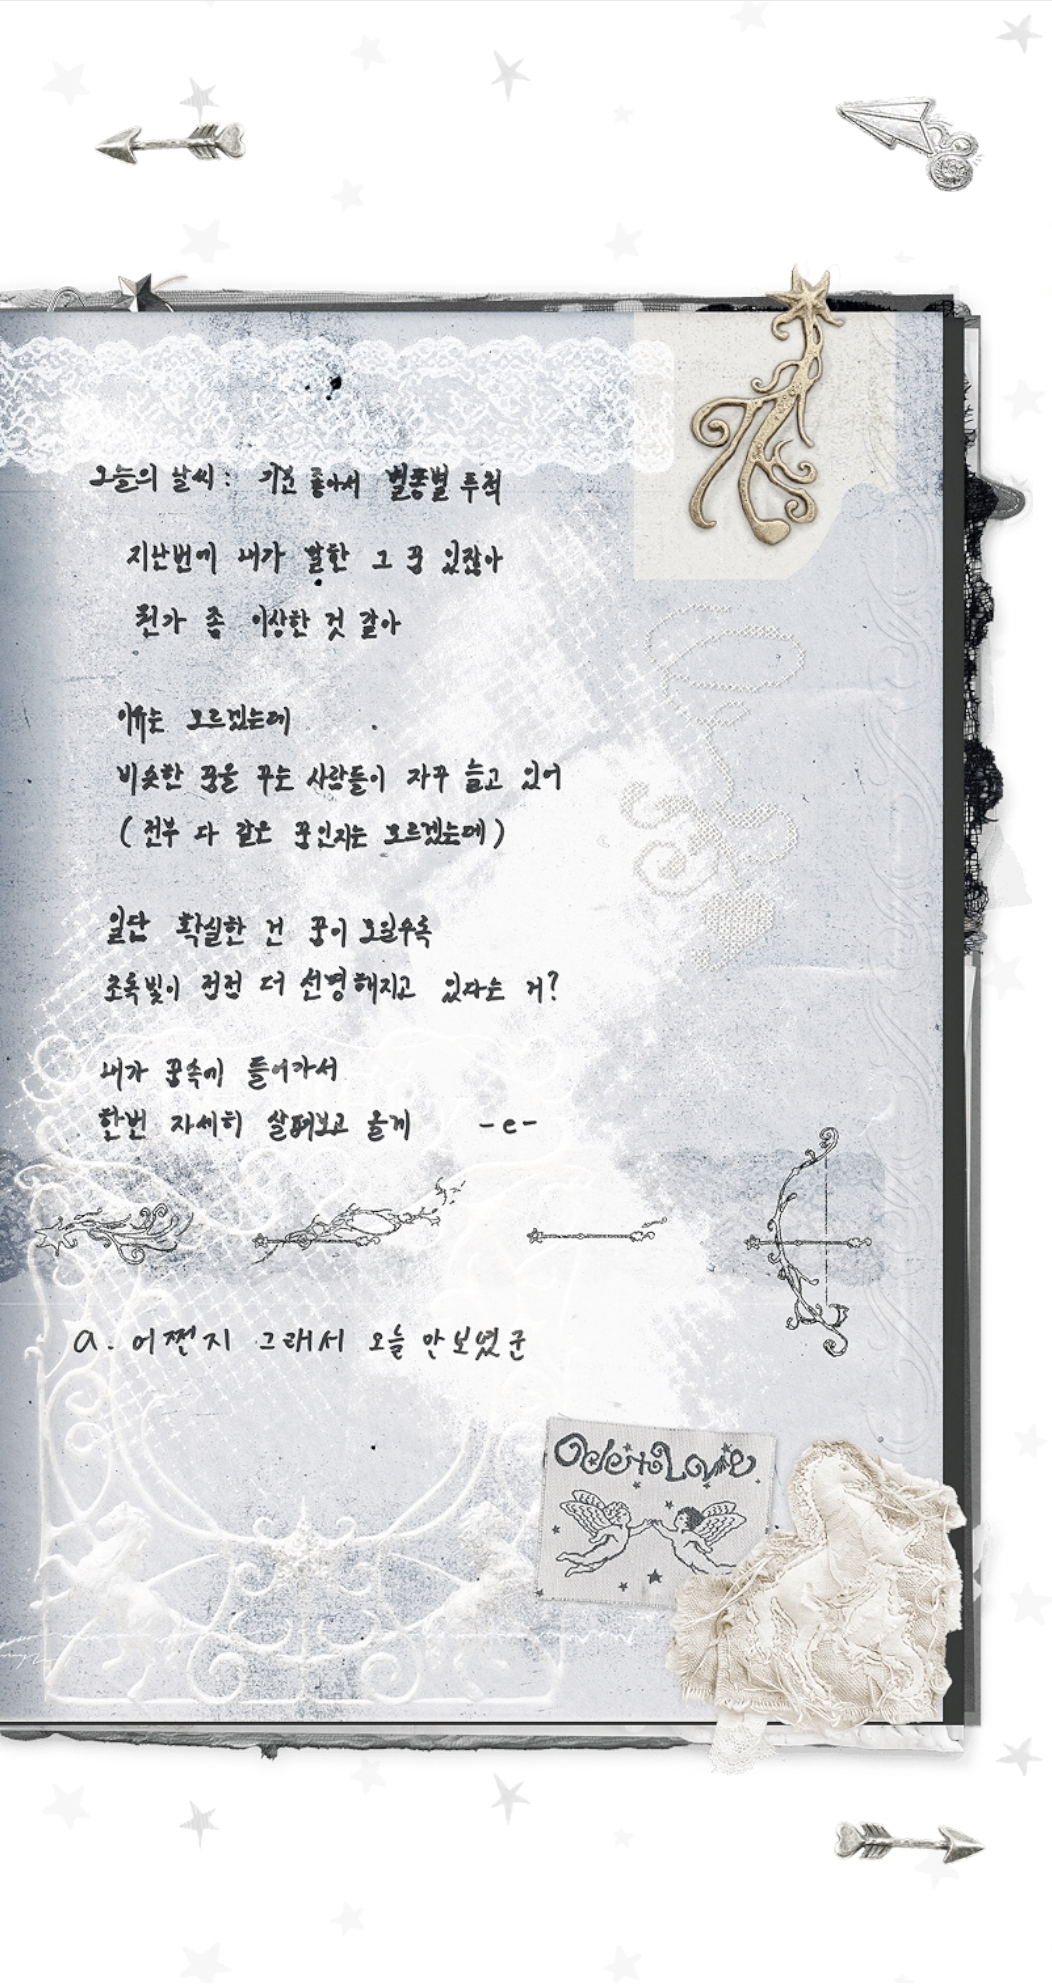 오늘의 날씨 : 기분 좋아서 별똥별 투척
지난번에 내가 말한 그 꿈 있잖아
뭔가 좀 이상한 것 같아
이유는 모르겠는데
비슷한 꿈을 꾸는 사람들이 자꾸 늘고 있어
(전부 다 같은 꿈인지는 모르겠는데)
일단 확실한 건 꿈이 모일수록
초록빛이 점점 더 선명해지고 있다는 거?
내가 꿈속에 들어가서
한번 자세히 살펴보고 올게 -e-
a. 어쩐지 그래서 오늘 안보였군
Ode to Love